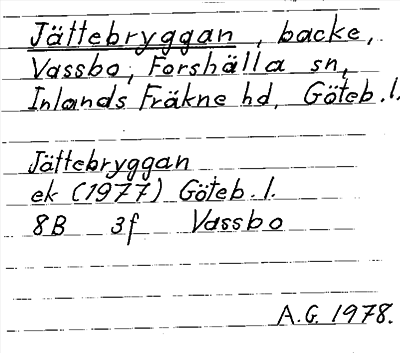 Jättebryggan, backe,
Vassbo, Forshälla sn,
Inlands Fräkne hd, Göteb.l.
Jättebryggan
ek (1977) Göteb.l.
8B 3f Vassbo
A.G. 1978.